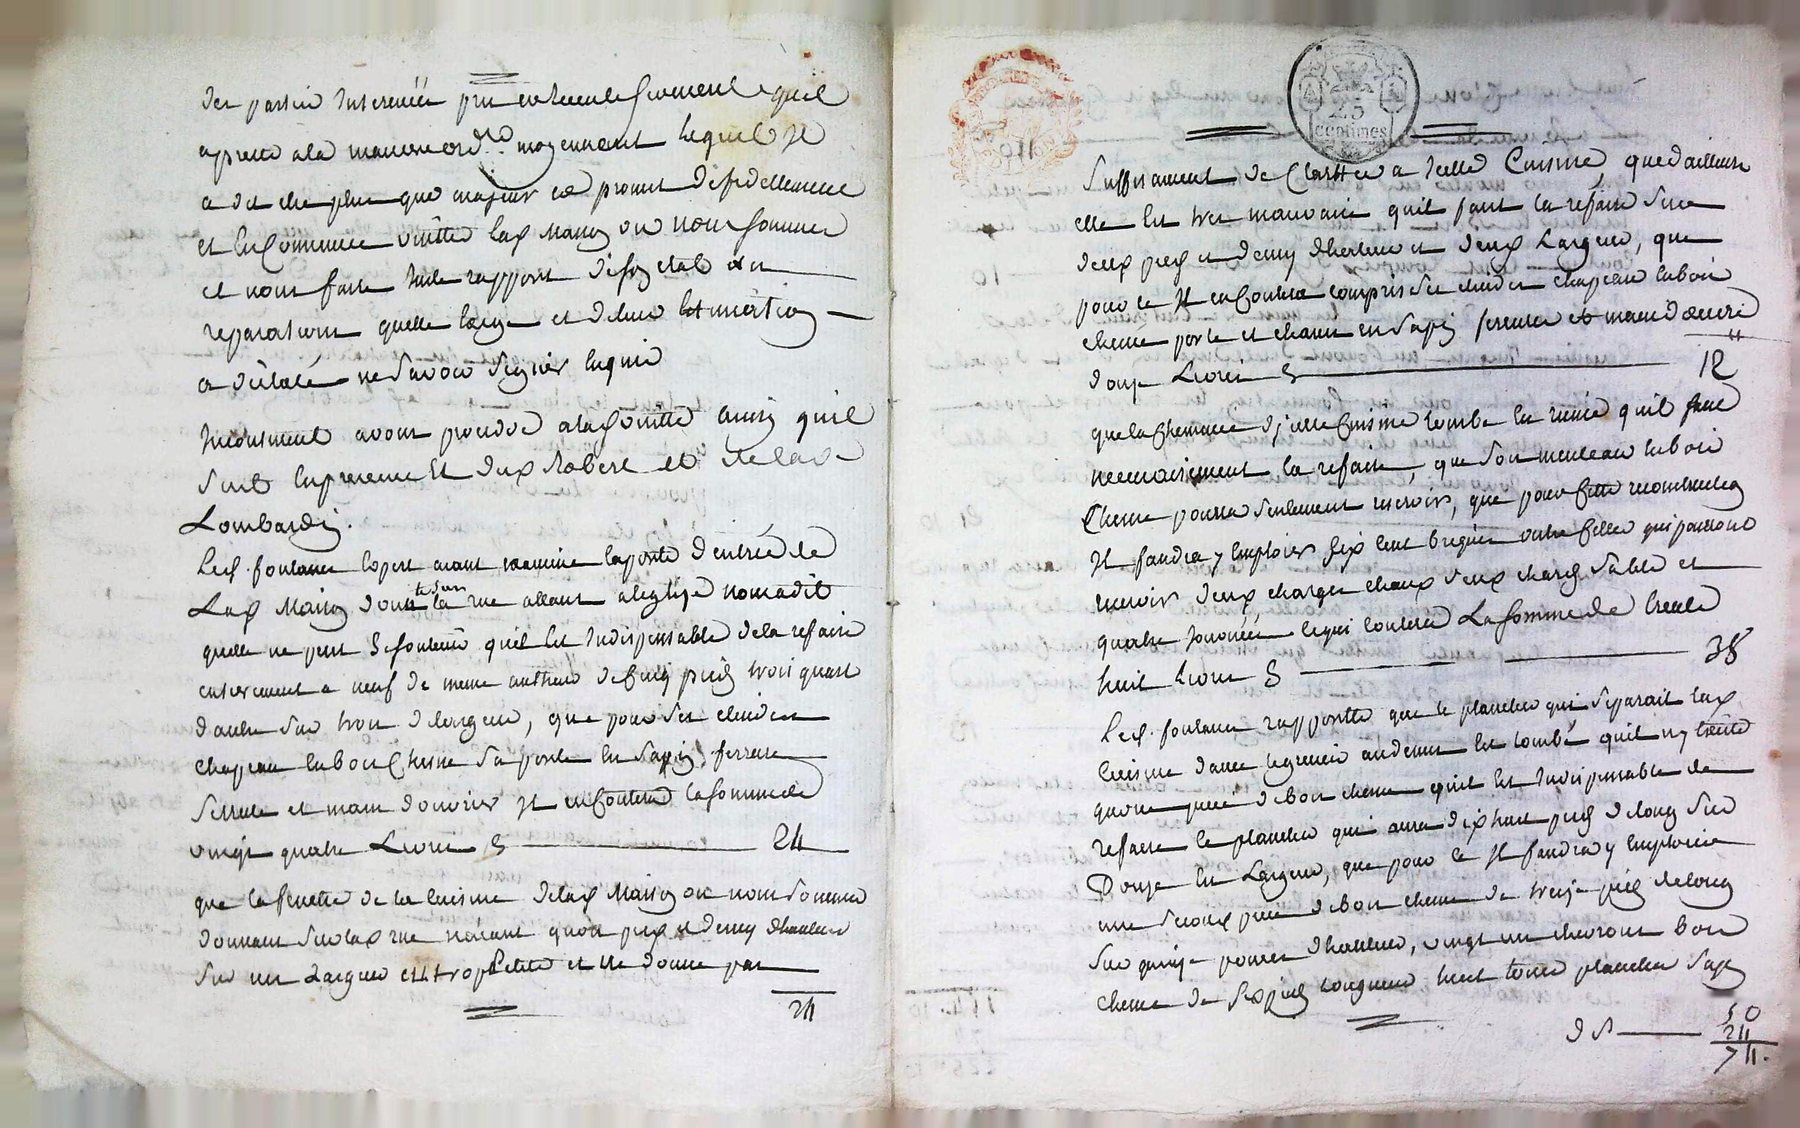 des parties interessées pris en la ? serment quil
a presté a la maniere ord.re moyennant lequel Il
a dit etre plus que majeur et promis de fidellement
et En Conscience visitter lad Maison ou nous sommes
et nous faire Juste rapport de son etat des
reparations quelle Exige et de leur Estimation
a déclaré ne Savoir Signer Enquis
Incontinent avons procédé a lad visitte ainsi quil
Suit En presence Et desd Robert et
Lombardin.
Led. fontanes Expert ayant examiné la porte d'entrée de
Lad Maison donnant sur la rue allant a léglize nous a dit
quelle ne peut Se soutenir quil Est Indispensable de la refaire
entierement a neuf de meme autheur de Cinq pieds trois quart
d'autheur Sur trois de largeur, que pour Ses
chapeau En bois Chesne Sa porte En Sapin ferrure
Serrure et main douvrier Il en Coutera la Somme de
vingt quatre Livres 24
que la fenettre de la Cuisine de lad Maison ou nous Sommes
donnant Sur lad rue n'ayant que pieds et demy dhauteur
Sur un Largeur est trop Petite et ne donne pas
24
25
centimes
Suffisament de Clartté a Icelle Cuisine, que dailleurs
elle Est tres mauvaise quil faut la refaire Sur
deux pieds et demy dhauteur et deux Largeur, que
pour ce Il en Coutera compris Ses chapeau En bois
chesne porte et chassis en Sapin ferrures et main d'œuvre
douze Livres 12
que la Cheminée d'icelle Cuisine tombe En ruine quil faut
necessairement la refaire, que Son manteau En bois
Chesne pourra Seulement Servoir, que pour Cette reconstruction
Il faudra y Emploier Six Cent briques outre Celles qui pourront
Servoir deux charges chaux deux charges Sable et
quatre Journées ce qui Coutera La Somme de trente
huit Livres 38
Led. fontanes rapportte que le plancher qui Separait lad
Cuisine d'avec le grenier au dessus Est tombé quil n'y Existe
quune piece de bois chesne quil Est Indispensable de
refaire le plancher qui aura dix huit pieds de long Sur
Douze En Largeur, que pour ce Il faudra y Emploier
une Seconde piece de bois chesne de treize pieds de long
Sur quinze pouces dhauteur, vingt un chevrons bois
chesne de Six pieds Longueur huit toises planches Sapin
50
24
74.